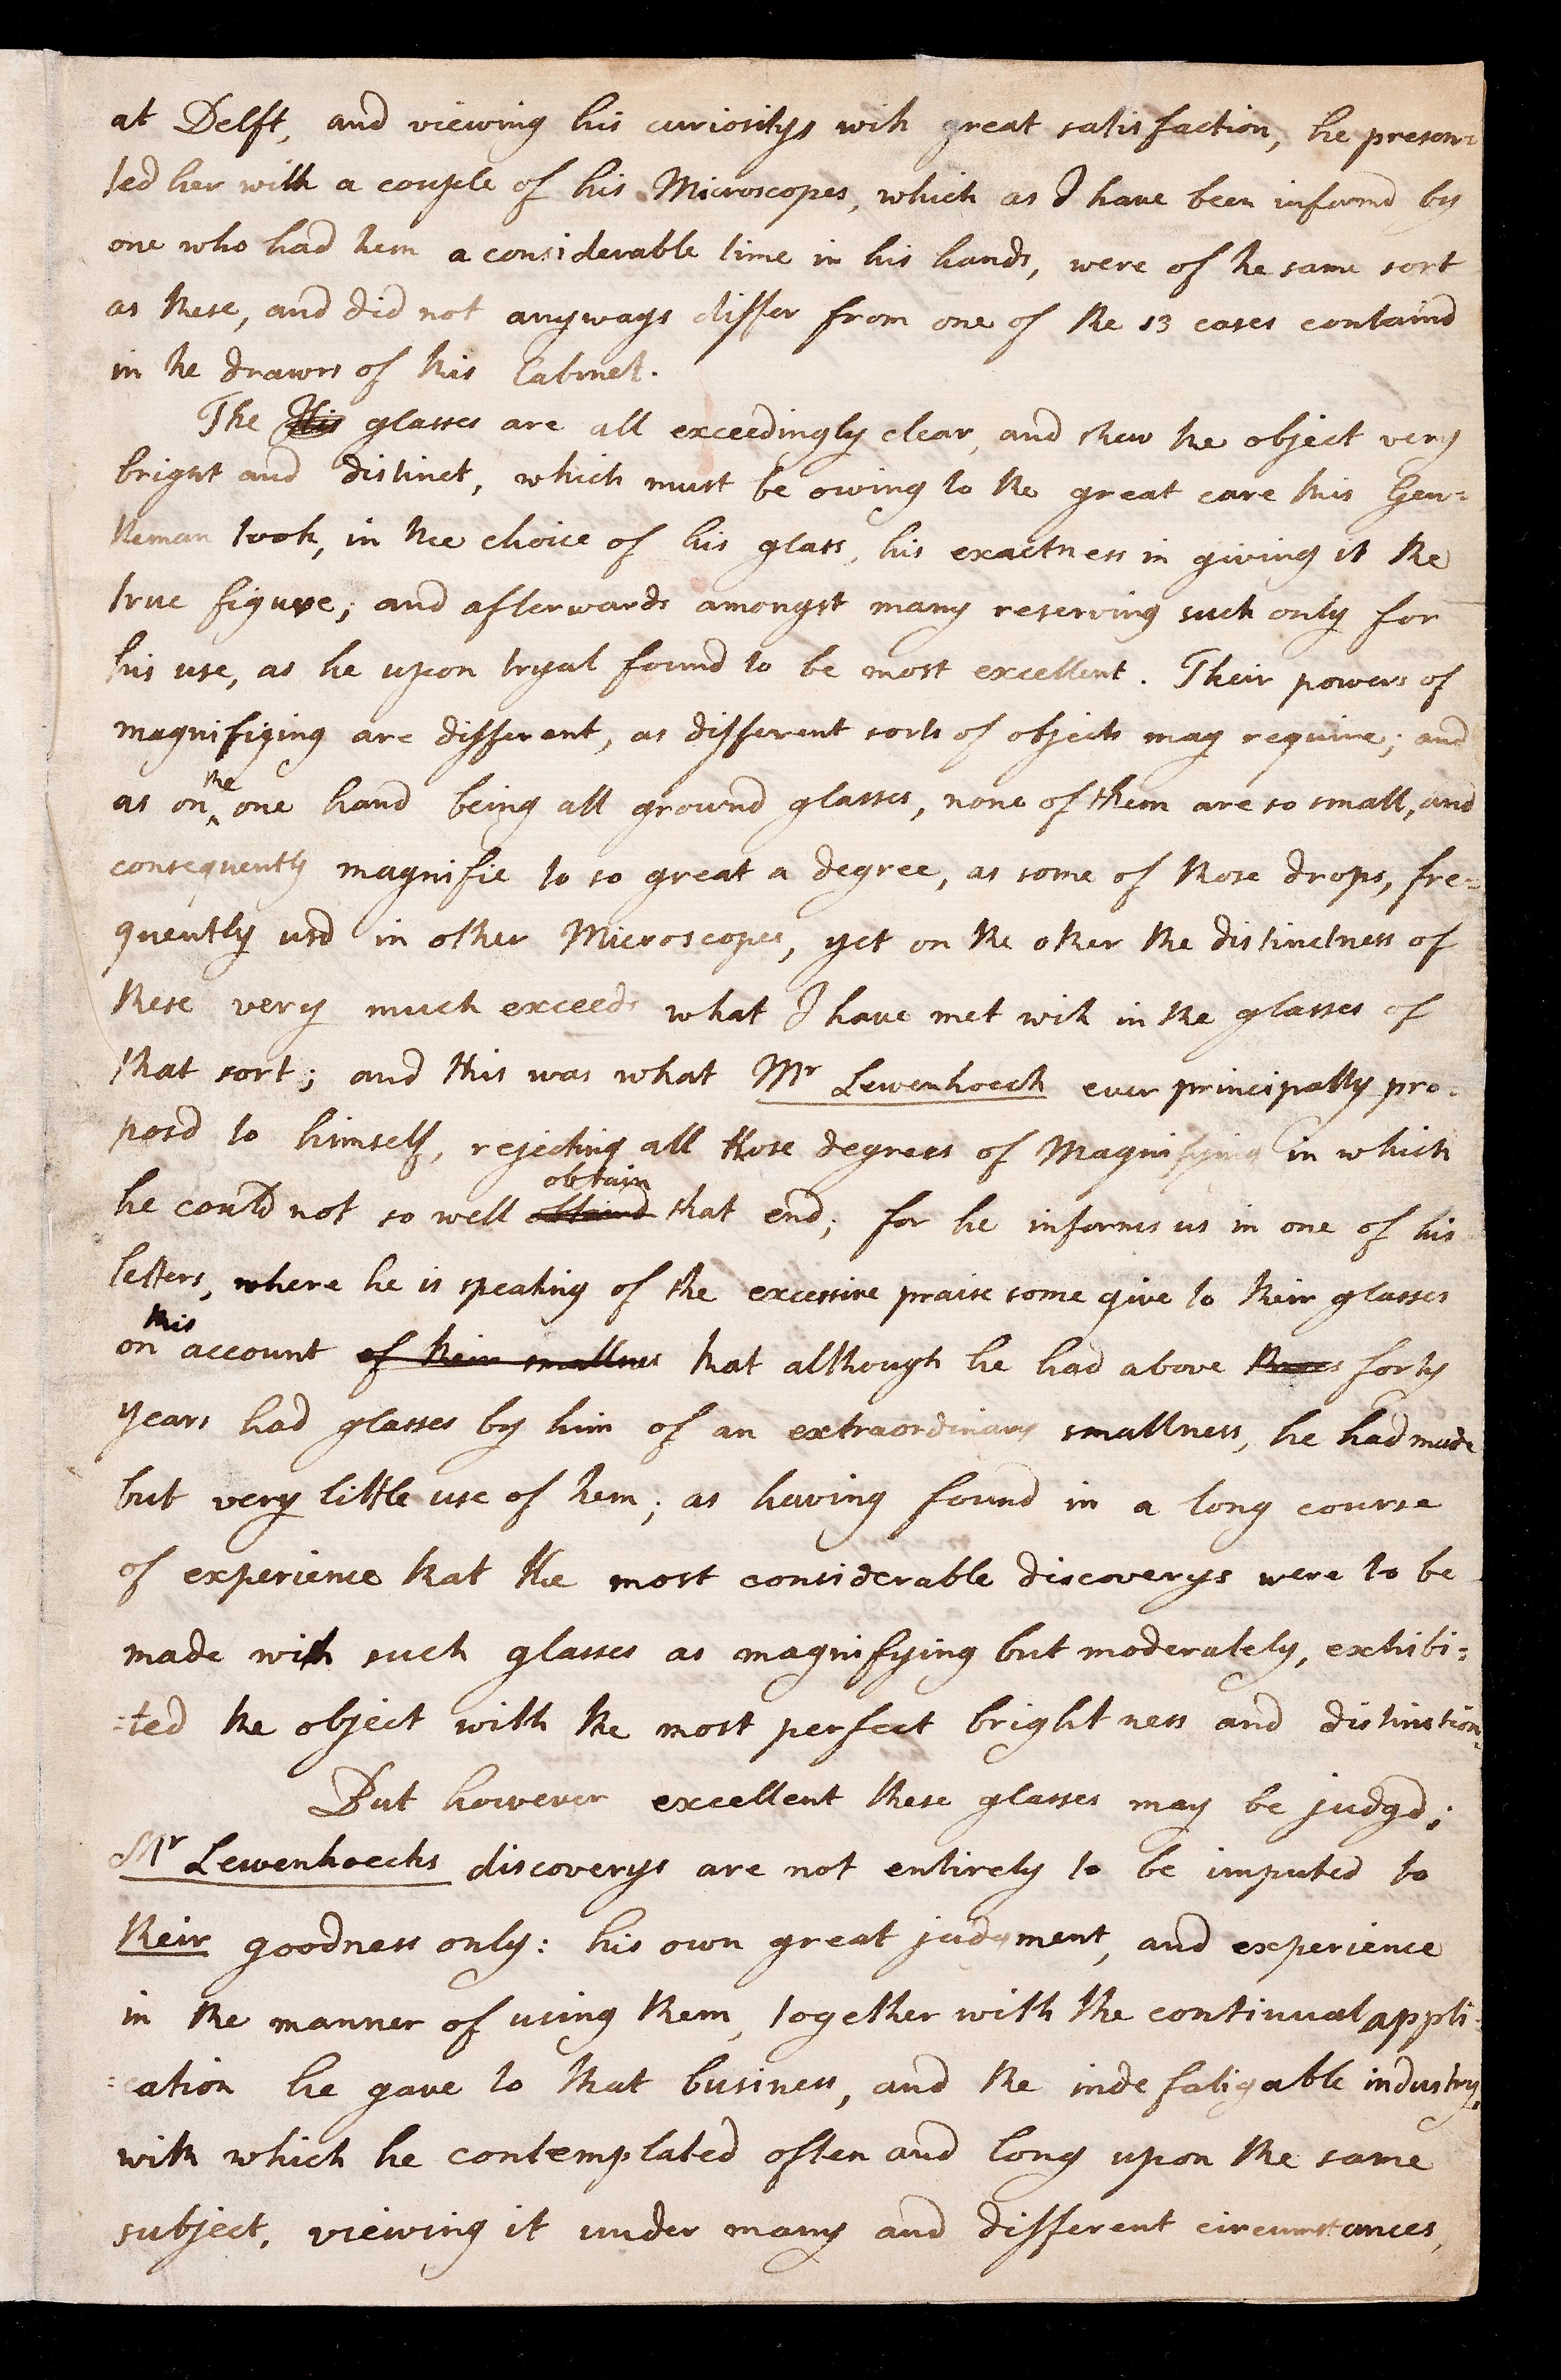 at Delft, and viewing his curiositys with great satisfaction, he presen=
ted her with a couple of his Microscopes, which as I have been informd by
one who had them a considerable time in his hands, were of the same sort
as these, and did not anyways differ from one of the 13 cases containd
in the drawrs of this Cabinet.
The His glasses are all exceedingly clear, and shew the object very
bright and distinct, which must be owing to the great care this Gen=
tleman took, in the choice of his glass, his exactness in giving it the
true figure; and afterwards amongst many reserving such only for
his use, as he upon tryal found to be most excellent. Their powers of
magnifiging are different, as different sorts of objects may require; and
as on the one hand being all ground glasses, none of them are so small, and
consequently magnifie to so great a degree, as some of those drops, fre=
quently usd in other Microscopes, yet on the other the distinctness of
these very much exceeds what I have met with in the glasses of
that sort; and this was what Mr Lewenhoeck ever principally pro=
posd to himself, rejecting all those degrees of Magnifying in which
he could not so well obtaind obtain that end; for he informs us in one of his
letters, where he is speaking of the excessive praise some give to their glasses
on this account of their smallness that although he had above forty
years had glasses by him of an extraordinary smallness, he had made
but very little use of them; as having found in a long course
of experience that the most considerable discoverys were to be
made with such glasses as magnifying but moderately, exhibi=
=ted the object with the most perfect brightness and distinction.
But however excellent these glasses may be judgd;
Mr Lewenhoecks discoverys are not entirely to be imputed to
their goodness only: his own great judgment, and experience
in the manner of using them, together with the continual appli=
=cation he gave to that business, and the indefatigable industry,
with which he contemplated often and long upon the same
subject, viewing it under many and different circumstances,